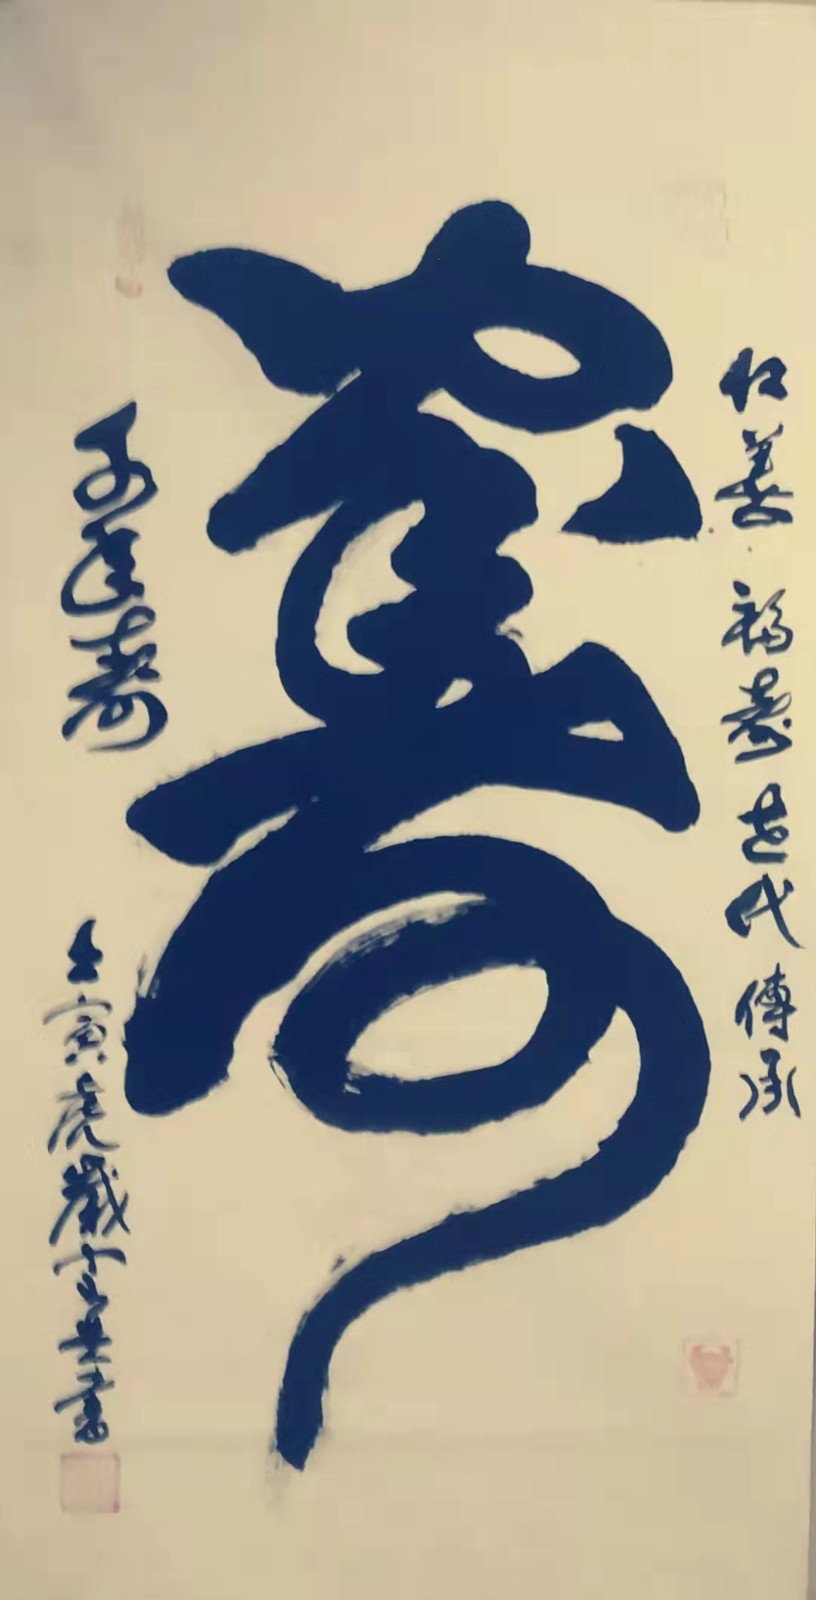 仁善 福壽世代傳承
壽
千年壽
壬寅虎歲
書